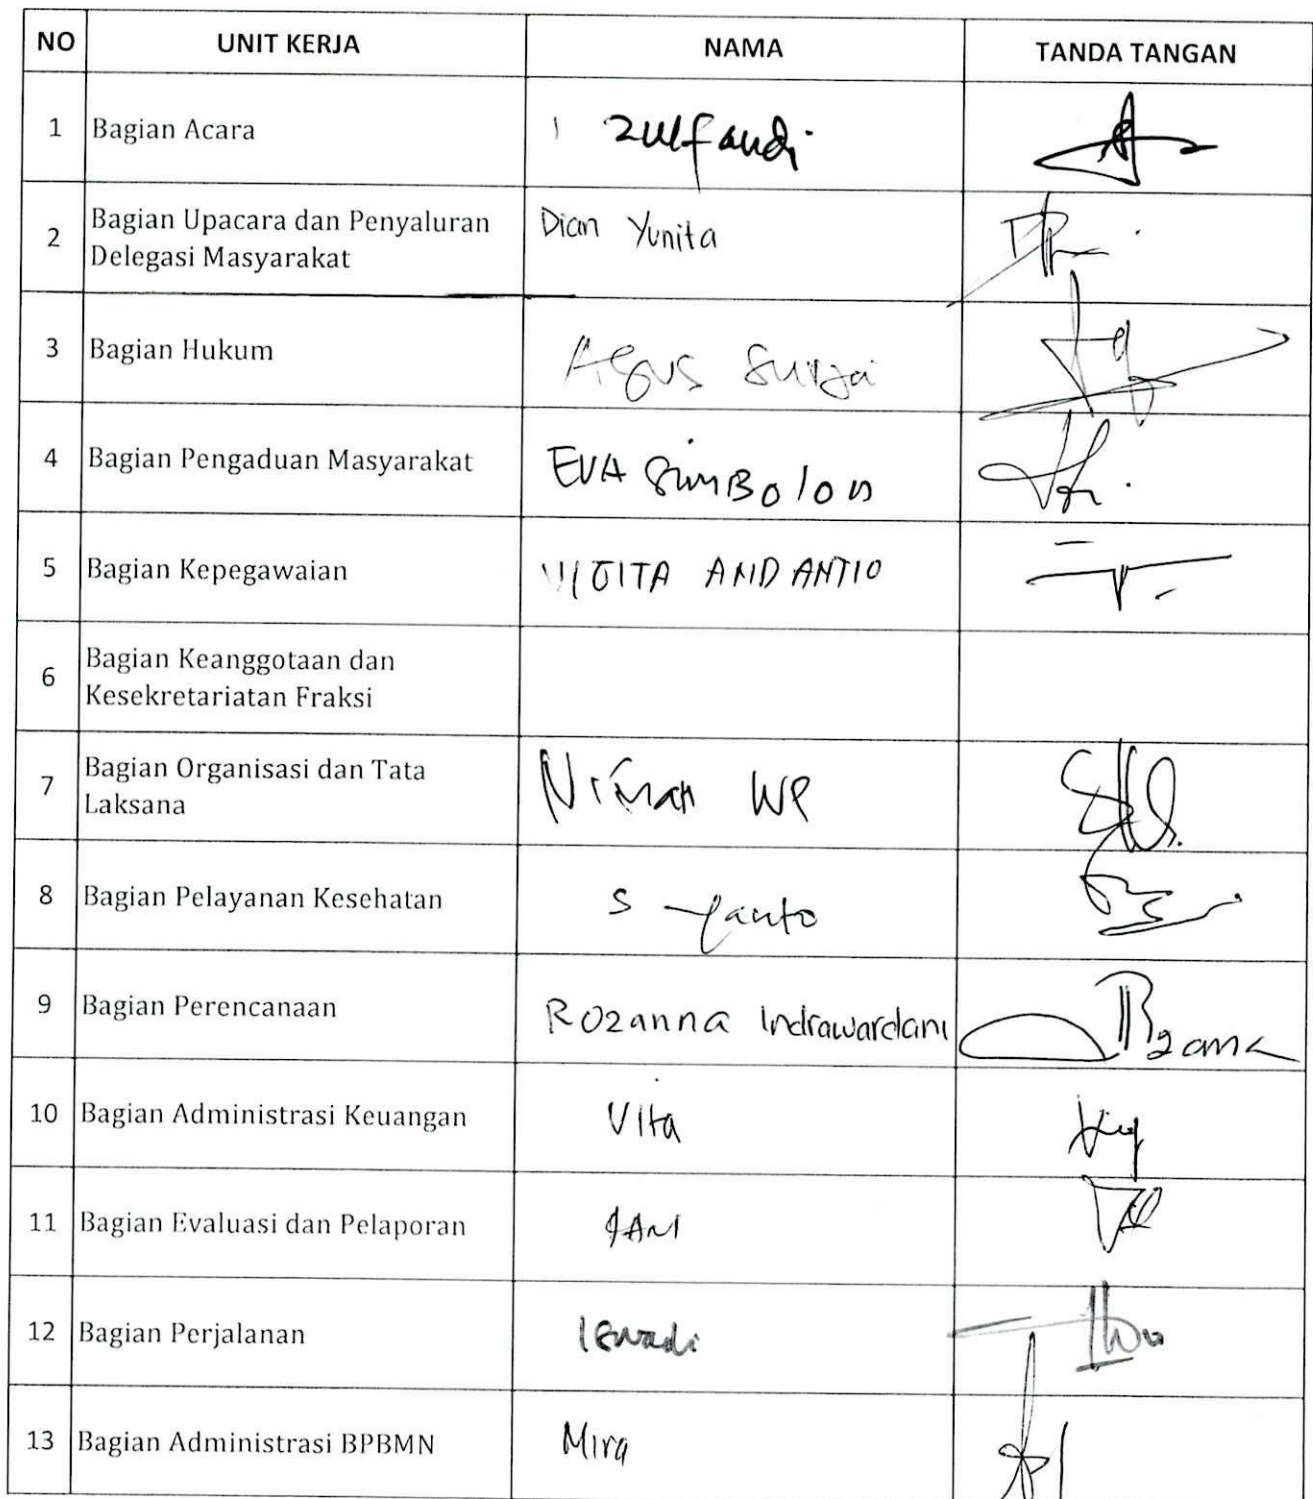 NO UNIT KERJA NAMA TANDA TANGAN
1 Bagian Acara Zulfandi
2 Bagian Upacara dan Penyaluran Delegasi Masyarakat Dian Yunita
3 Bagian Hukum Agus Surya
4 Bagian Pengaduan Masyarakat EVA SimBolon
5 Bagian Kepegawaian ANDANTIO
6 Bagian Keanggotaan dan Kesekretariatan Fraksi
7 Bagian Organisasi dan Tata Laksana WP
8 Bagian Pelayanan Kesehatan
9 Bagian Perencanaan Rozanna Indrawardani
10 Bagian Administrasi Keuangan Vita
11 Bagian Evaluasi dan Pelaporan
12 Bagian Perjalanan
13 Bagian Administrasi BPBMN Mira